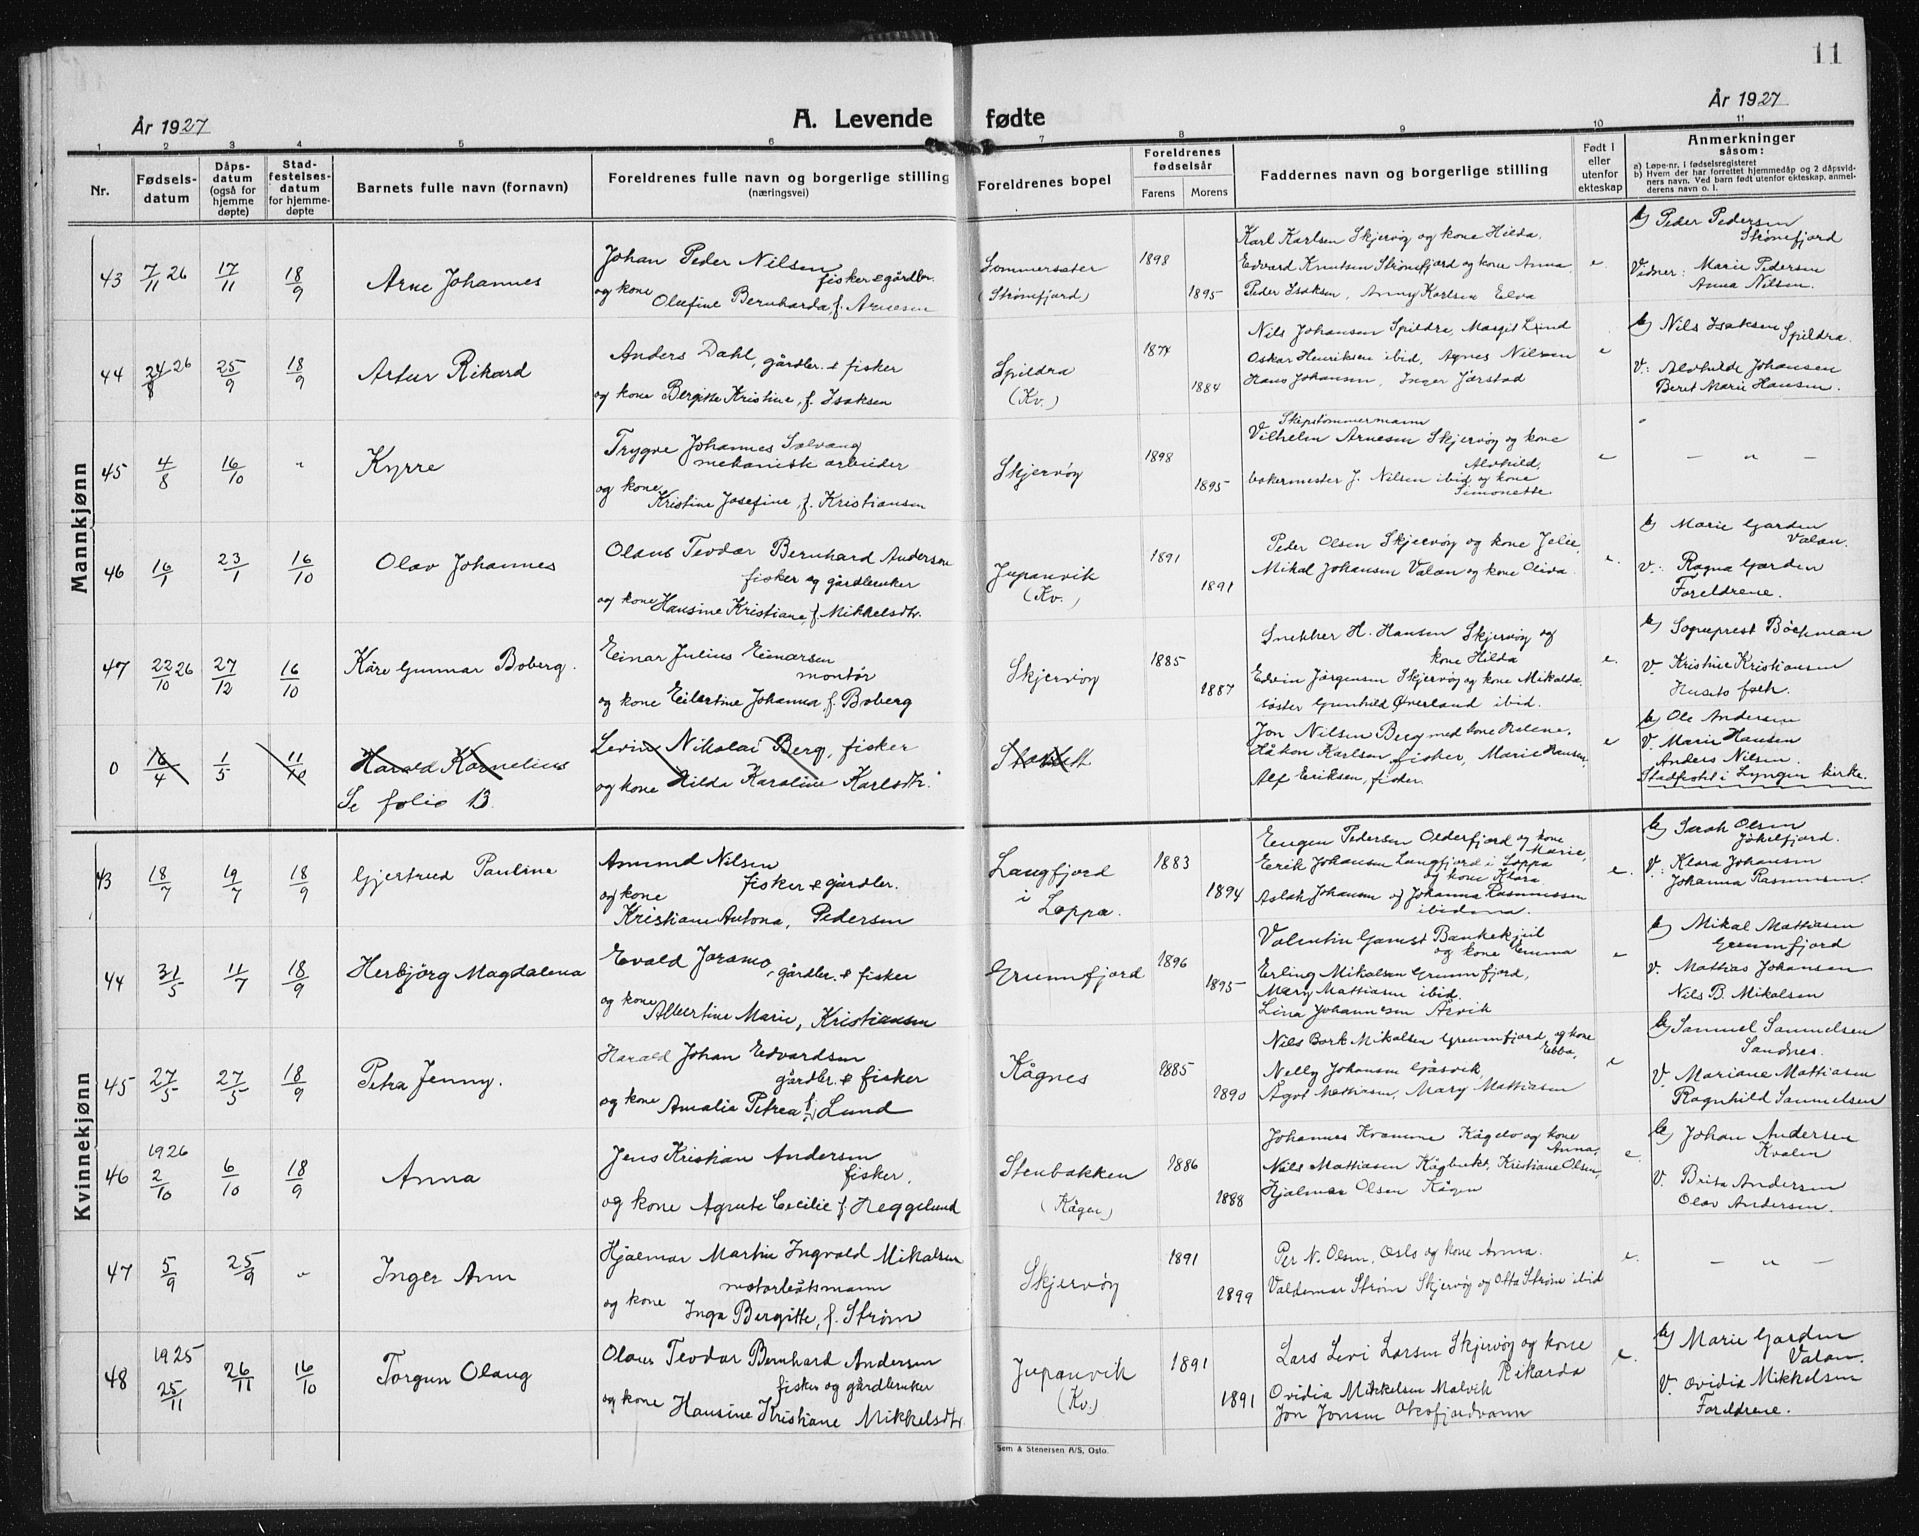 11
År 1927
A. Levende fødte
År 1927
1 2 3 4 5 6 7 8 9 10 11
Nr.
Fødselsdatum
Dåpsdatum (også for hjemmedøpte)
Stadfestelsesdatum for hjemmedøpte
Barnets fulle navn (fornavn)
Foreldrenes fulle navn og borgerlige stilling
(næringsvei)
Foreldrenes bopel
Foreldrenes fødselsår
Farens Morens
Faddernes navn og borgerlige stilling
Født i eller utenfor ekteskap
Anmerkninger
såsom:
a) Løpe-nr. i fødselsregisteret
b) Hvem der har forrettet hjemmedåp og 2 dåpsvidners navn. Ved barn født utenfor ekteskap, anmelderens navn o. l.
Mannkjønn
43 7/11 26 17/11 18/9 Arne Johannes
Johan Peder Nilsen
fisker & gårdbr.
og kone
Olufine Bernharda, f. Arnesen
Sommersæter
(Strømfjord)
1898
1895
Karl Karlsen Skjervøy og kone Hilda,
Edvard Knutsen Strømfjord og kone Anna,
Peder Isaksen, Anny Karlsen Elva
e
b) Peder Pedersen
Strømfjord
Vidner: Marie Pedersen
Anna Nilsen.
44 24/8 26 25/9 18/9 Artur Rikard
Anders Dahl, gårdbr. & fisker
og kone Bergitte Kristine, f. Isaksen
Spildra
(Kv.)
1874
1884
Nils Johansen Spildra, Margit Lund
Oskar Henriksen ibid, Agnes Nilsen
Hans Johansen, Inger Jørstad
e
b) Nils Isaksen Spildra.
V: Alvhilde Johansen
Beret Marie Hansen.
45 4/8 16/10 " Kyrre
Trygve Johannes Solvang
mekanisk arbeider
og kone
Kristine Josefine, f. Kristiansen
Skjervøy
1898
1895
Skipstømmermann
Vilhelm Arnesen Skjervøy og kone
Alvhild,
bakermester J. Nilsen ibid og kone
Simonette
e
— " —
46 16/1 23/1 16/10 Olav Johannes
Olaus Teodor Bernhard Andersen
fisker og gårdbruker
og kone Hansine Kristiane, f. Mikkelsdtr.
Jupanvik
(Kv.)
1891
1891
Peder Olsen Skjervøy og kone Jelie,
Mikal Johansen Valan og kone Oliva.
e.
b) Marie Garden
Valan.
V.: Ragna Garden
Foreldrene.
47 22/10 26 27/12 16/10 Kåre Gunnar Boberg.
Einar Julius Einarsen
montør
og kone Eilertine Johanna, f. Boberg
Skjervøy
1885
1887
Snekker H. Hansen Skjervøy og
kone Hilda
Edvin Jørgensen Skjervøy og kone Mikalda
søster Gunhild Øverland ibid.
e.
b) Sogneprest Böckman
V. Kristine Kristiansen
Husets folk.
0 16/4 1/5 11/10 Harald Kornelius
Se folio 13.
Levin Nikolai Berg, fisker
og kone Hilda Karoline Karlsdtr.
Jon Nilsen Berg med kone Helene,
Håkon Karlsen, fisker, Marie Hansen,
Alf Eriksen, fisker.
e
b) Ole Andersen
V. Marie Hansen
Anders Nilsen.
Stadfestet i Lyngen kirke.
Kvinnekjønn
43 18/7 19/7 18/9 Gjertrud Pauline
Amund Nilsen
fisker & gårdbr.
og kone
Kristiane Antona, Pedersen
Langfjord
i Loppa.
1883
1894
Eugen Pedersen Olderfjord og kone
Marie,
Erik Johansen Langfjord i Loppa
og kone Klara
Aslak Johansen og Johanna Rasmussen
ibidema.
e.
b) Sarah Olsen
Jøkelfjord.
V.: Klara Johansen
Johanna Rasmussen.
44 31/5 11/7 18/9 Herbjörg Magdalena
Evald Joramo, gårdbr. & fisker
og kone
Albertine Marie, Kristiansen
Grunnfjord
1896
1895
Valentin Gamst Bankekjil
og kone Emma
Erling Mikalsen Grunnfjord,
Mary Mattiasen ibid.
Lina Johannesen Arvik
e
b) Mikal Mattiasen
Grunnfjord
V. Mattias Johansen
Nils B. Mikalsen
45 27/5 27/5 18/9 Petra Jenny.
Harald Johan Edvardsen
gårdbr. & fisker
og kone Amalia Petrea f. Lund
Kågnes
1885
1890
Nils Bork Mikalsen Grunnfjord, og kone
Ebba,
Nelly Johansen Gåsvik,
Ågot Mattiasen, Mary Mattiasen
e
b) Samuel Samuelsen
Sandnes.
V. Mariane Mattiasen
Ragnhild Samuelsen
46 1926 2/10 6/10 18/9 Anna
Jens Kristian Andersen
fisker,
og kone Agnete Cecilie f. Heggelund
Stenbakken
(Kågen)
1886
1888
Johannes Kramme Kågelv og kone
Anna,
Nils Mattiasen Kågbukt, Kristiane Olsen,
Hjalmar Olsen Kågen
e.
b) Johan Andersen
Kvalen
V. Brita Andersen
Olav Andersen.
47 5/9 25/9 " Inger Ann
Hjalmar Martin Ingvald Mikalsen
motorbåtsmann
og kone
Inga Bergitte, f. Strøm
Skjervøy
1891
1899
Per N. Olsen, Oslo og kone Anna.
Valdemar Strøm Skjervøy og Otta Strøm ibid
e.
— " —
48 1925 25/11 26/11 16/10 Torgun Olaug
Olaus Teodor Bernhard Andersen
fisker og gårdbruker
og kone Hansine Kristiane Mikkelsdtr.
Jupanvik
(Kv.)
1891
1891
Lars Levi Larsen Skjervøy og kone
Rikarda
Ovidia Mikkelsen Malvik
Jon Jonsen Oksfjordvann
e.
b) Marie Garden
Valan.
V. Ovidia Mikkelsen
Foreldrene.
Sem & Stenersen A/S, Oslo.